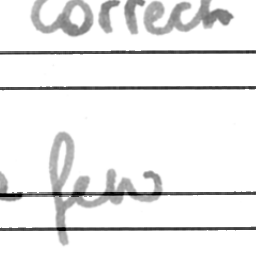 correct
few